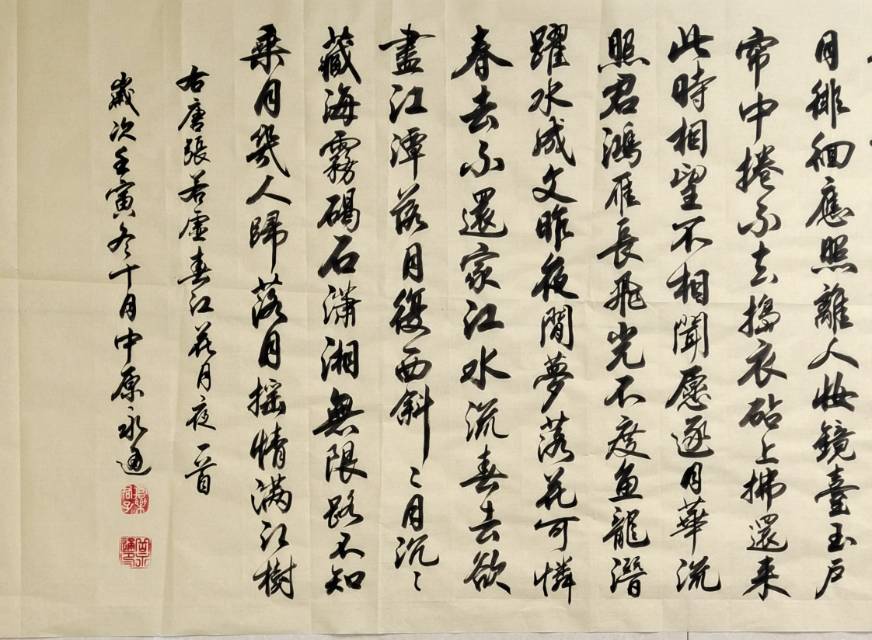 月徘徊應照離人妝鏡臺玉户
帘中捲不去搗衣砧上拂還来
此時相望不相聞愿逐月華流
照君鴻雁長飛光不度魚龍潛
躍水成文昨夜閒夢落花可憐
春去不還家江水流春去欲
盡江潭落月復西斜〻月沉〻
藏海霧碣石瀟湘無限路不知
乘月幾人歸落月摇情满江樹
右唐張若虛春江花月夜一首
歲次壬寅冬十月中原永通